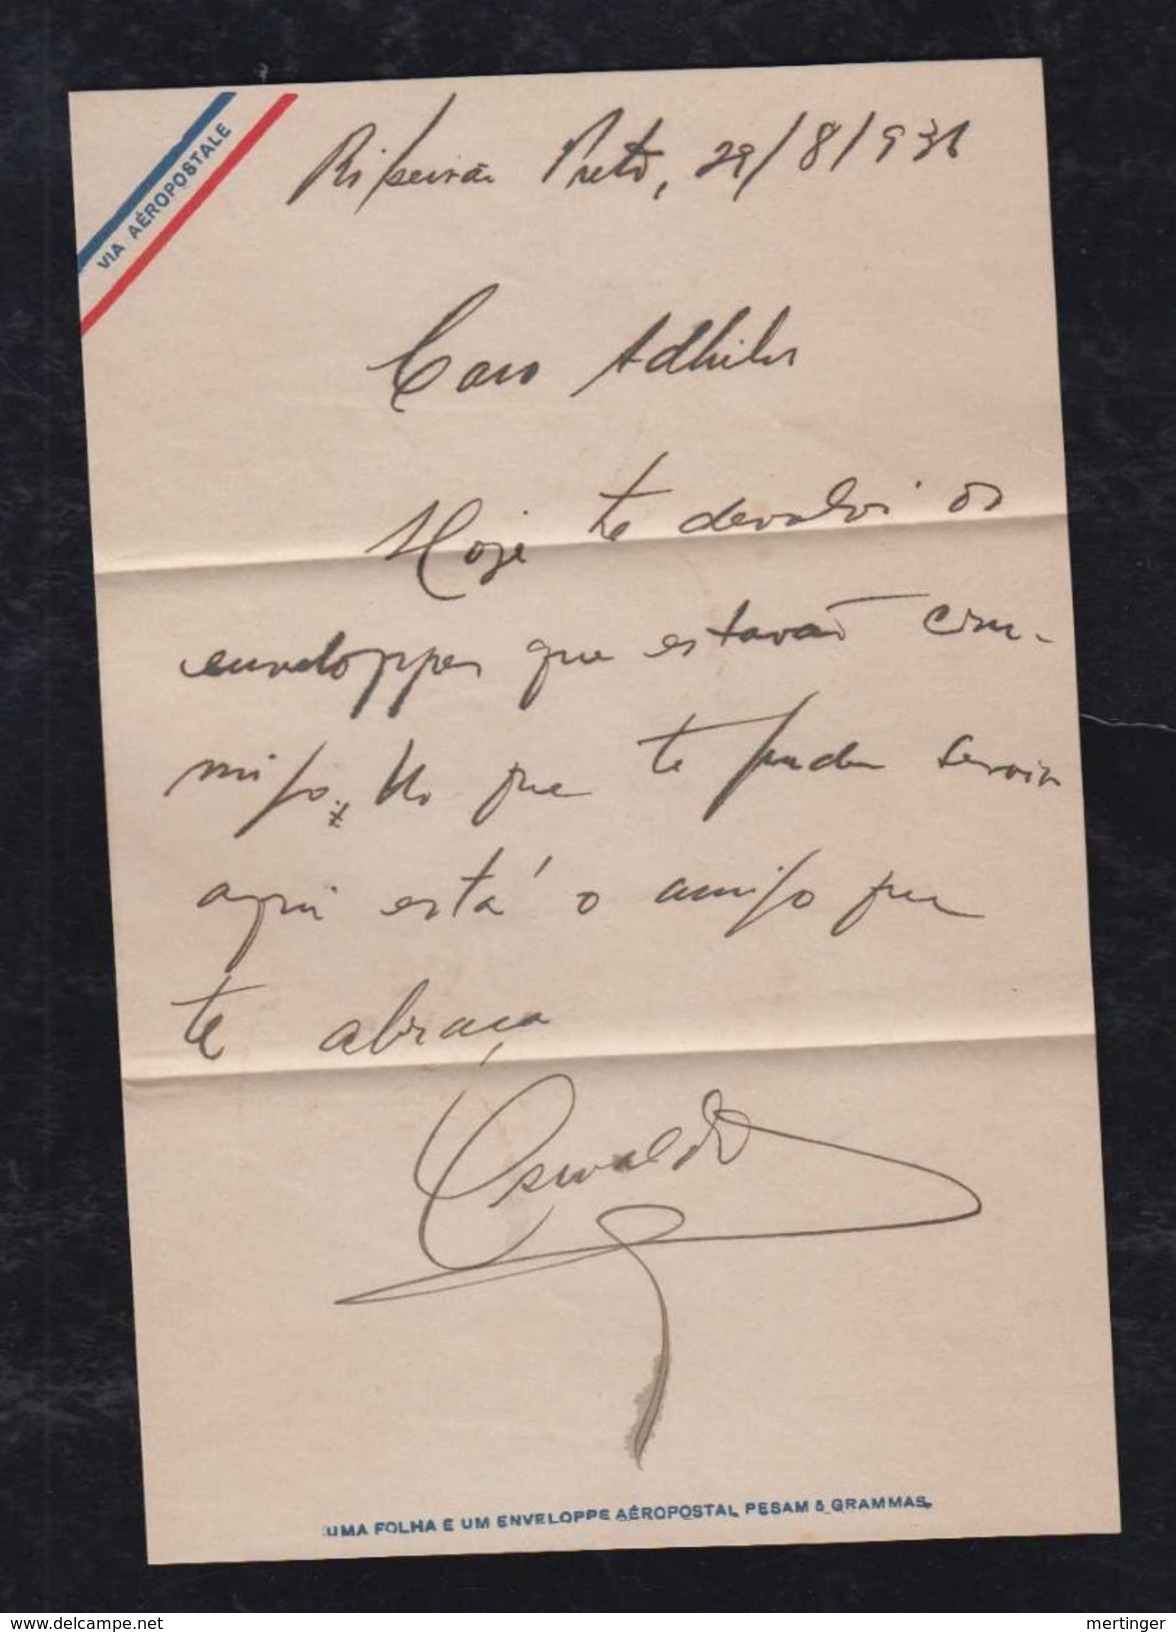 VIA AÉROPOSTALE
Ribeirão Preto, 29/8/931
Caro
Hoje te devolvi os
enveloppes que estavão com-
migo. No que te puder servir
aqui está o amigo que
te abraça
Oswaldo
UMA FOLHA E UM ENVELOPPE AÉROPOSTAL PESAM 5 GRAMMAS.
www.delcampe.net
mertinger